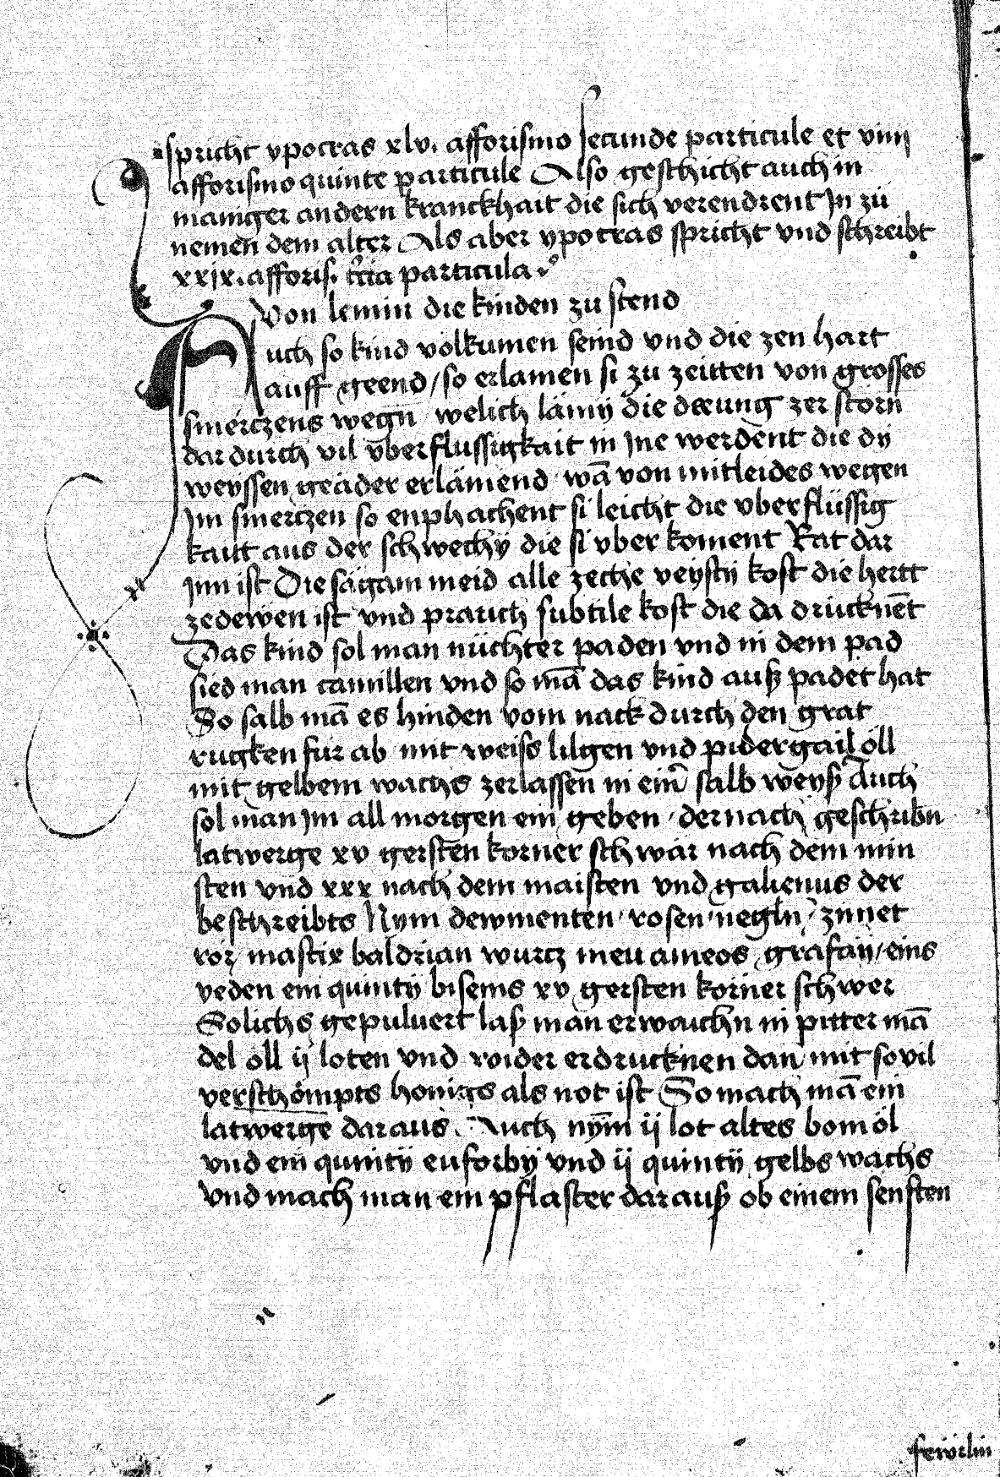 spricht ypocras xlv. afforismo secunde particule et viiij
afforismo quinte particule Also geschicht auch in
maniger andern kranckhait die sich verendrent Jn zů
nemen dem alter Als aber ypocras spricht vnd schreibt
xxix. afforis. tercia particula
Von lemin die kinden zu stend
Auch so kind volkumen seind vnd die zen hart
auff geend / so erlamen si zu zeitten von grosses
smerczens wegn welich lämij die döung zer storn
dar durch vil vberflussigkait in Jne werdent die dij
weyssen geäder erlämend wā von mitleides wegen
Jm smerczen so enphachent si leicht die vberflüssig
kait aus der schwechÿ die si vber koment Rat dar
Jnn ist Die sägam meid alle zeche veystij kost die hertt
zedewen ist vnd prauch subtile kost die da drucknēt
Das kind sol man nüchter paden vnd in dem pad
sied man camillen vnd so mā das kind auß padet hat
So salb mā es hinden vom nack durch den grat
rugken für ab mit weiss lilgen vnd pidergail öll
mit gelbem wachs zerlassen in einr salb weyß Auch
sol man Jm all morgen ein geben dernach geschribn
latwerge xv gersten korner schwär nach dem min
sten vnd xxx nach dem maisten vnd galienus der
beschreibts Nym dewmenten / rosen / negln / zinet
ror mastix baldrian wurcz meu ameos grafan / eins
yeden ein quintÿ bisems xv gersten körner schwer
Solichs gepuluert laß man erwaichn in pitter mā
del öll ij loten vnd wider erdrucknen dan mit sovil
verschömpts honigs als not ist So mach mā ein
latwerge daraus. Auch nȳm ij lot altes bomöl
vnd ein quintÿ euforbÿ vnd ij quintÿ gelbs wachs
vnd mach man ein pflaster darauß ob einem senften
fewrlin